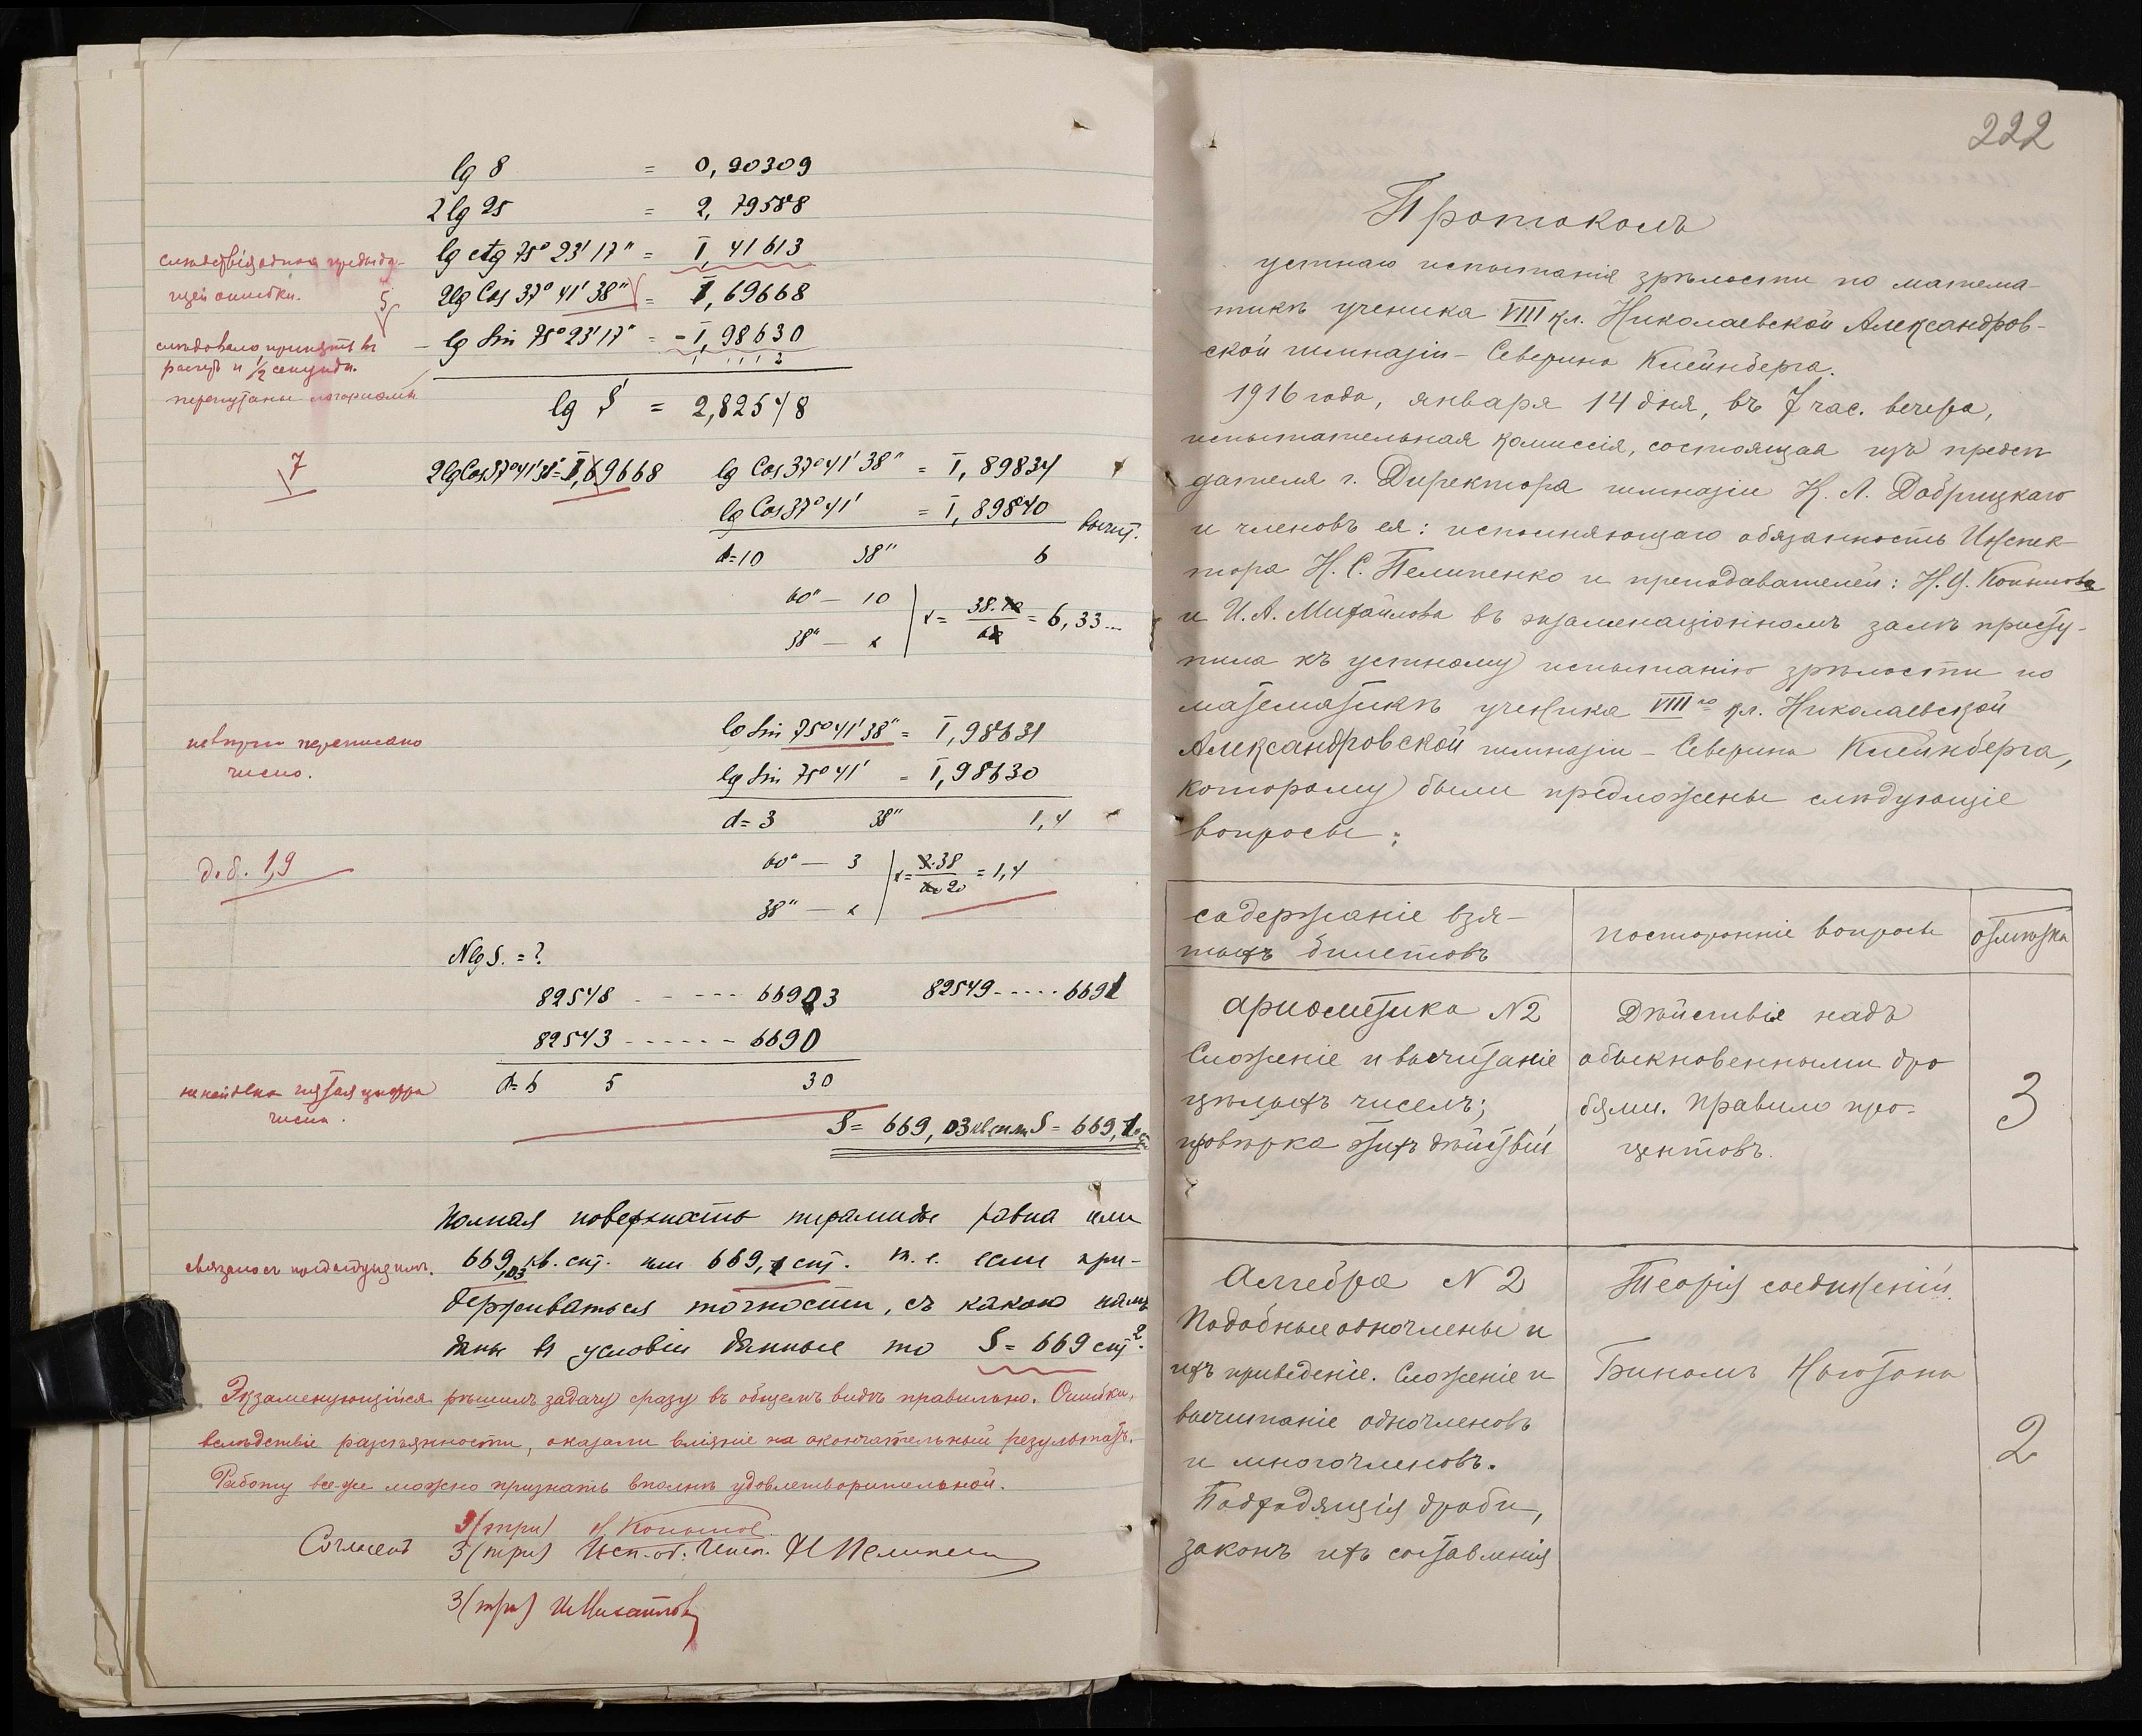 lg 8 = 0,90309
2 lg 25 = 2,79588
lg ctg 75° 23' 17" = Ī,41613
2lg Cos 37° 41' 38" = Ī,69668
- lg Sin 75° 23' 17" = -Ī,98630
lg S = 2,82548
слѣдствія одной предыду-
щей ошибки.
5
слѣдовало принять въ
расчетъ и ½ секунды.
перепутаны логариѳмы
7
2lgCos37°41'38" = Ī,69668
lg Cos 37° 41' 38" = Ī,89834
lg Cos 37° 41' = Ī,89840
вычит.
d=10 38" 6
60" — 10
38" — x
x = 38.10/60 = 6,33...
невѣрно переписано
число.
lg Sin 75° 41' 38" = Ī,98631
lg Sin 75° 41' = Ī,98630
d= 3 38" 1,4
д.б. 1,9
60" — 3
38" — x
x = 3.38/60 20 = 1,4
Nlg S. = ?
82548 - - - - - 66903 82549 ..... 6691
82543 - - - - - - 6690
d= 6 5 30
не найдена пятая цифра
числа.
S = 669,03 кв. снт. S = 669,1
Полная поверхность пирамиды равна или
связано съ предыдущимъ.
669,03 кв. снт. или 669,1 снт. т. е. если при-
держиваться точности, съ какою намъ
даны въ условіи данные то S = 669 снт².
Экзаменующійся рѣшилъ задачу сразу въ общемъ видѣ правильно. Ошибки,
вслѣдствіе разсѣянности, оказали вліяніе на окончательный результатъ.
Работу все-же можно признать вполнѣ удовлетворительной.
3 (три) Н Копыловъ.
Согласенъ 3 (три) Исп. об. Инсп. Н Пелипенко
3 (три) И Михайловъ
222
Протоколъ
устнаго испытанія зрѣлости по матема-
тикѣ ученика VIII кл. Николаевской Александров-
ской гимназіи - Северина Клейнберга.
1916 года, января 14 дня, въ 7 час. вечера,
испытательная комиссія, состоящая изъ предсѣ
дателя г. Директора гимназіи К. Л. Добрицкаго
и членовъ ея: исполняющаго обязанность Инспек-
тора Н. С. Пелипенко и преподавателей: Копылова
и И. А. Михайлова въ экзаменаціонномъ залѣ присту-
пила къ устному испытанію зрѣлости по
математикѣ ученика VIII го кл. Николаевской
Александровской гимназіи - Северина Клейнберга,
которому были предложены слѣдующіе
вопросы:
содержаніе взя-
тыхъ билетовъ
посторонніе вопросы
отмѣтка
Ариѳметика N2
Сложеніе и вычитаніе
цѣлыхъ чиселъ;
провѣрка этихъ дѣйствій
Дѣйствіе надъ
обыкновенными дро
бями. Правило про-
центовъ.
3
Алгебра N 2
Подобные одночлены и
ихъ приведеніе. Сложеніе и
вычитаніе одночленовъ
и многочленовъ.
Подходящія дроби,
законъ ихъ составленія
Теорія соединеній.
Биномъ Ньютона
2